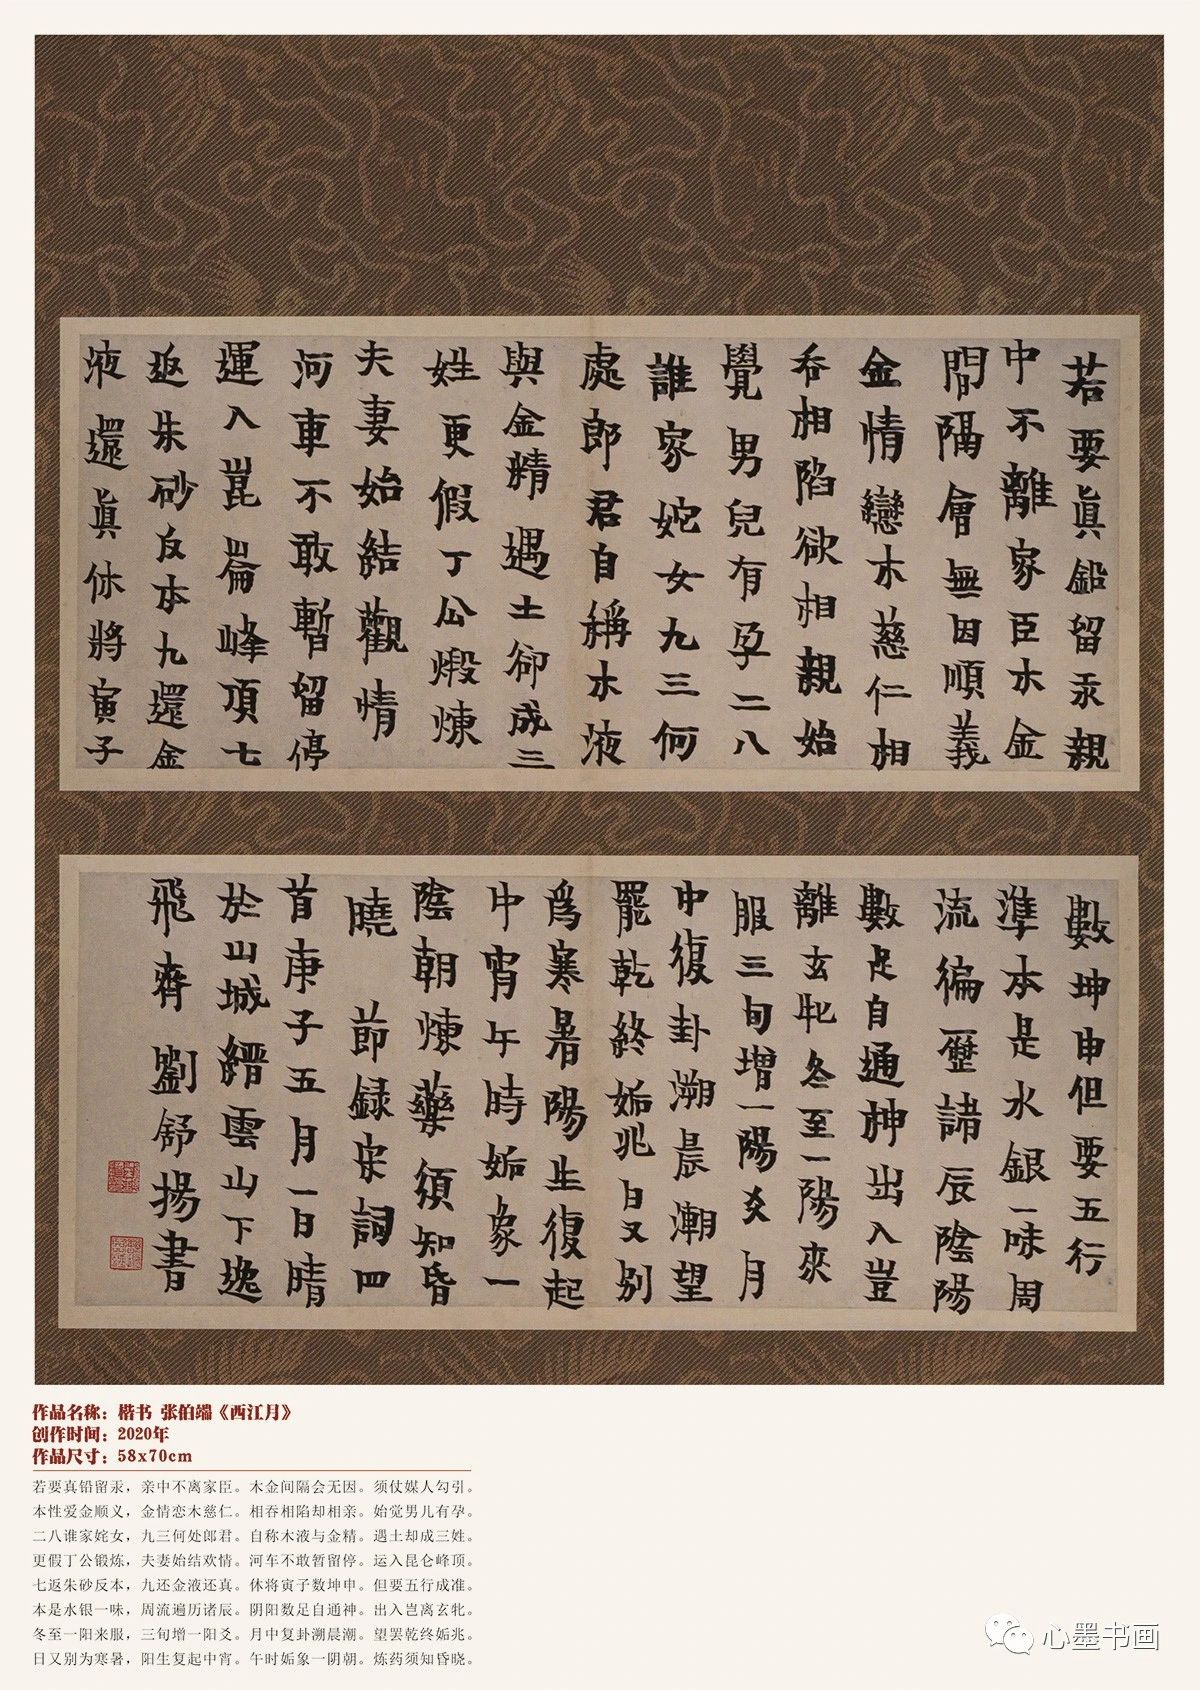 若要眞鉛留汞親
中不離家臣木金
間隔會無因順義
金情戀木慈仁相
吞相陷欲相親始
覺男兒有孕二八
誰家姹女九三何
處郎君自稱木液
與金精遇土卻成三
姓更假丁公煅煉
夫妻始結觀情
河車不敢暫留停
運入崑崙峰頂七
返朱砂反本九還金
液還眞休將寅子
數坤申但要五行
準本是水銀一味周
流徧歷諸辰陰陽
數足自通神出入豈
離玄牝冬至一陽來
服三旬增一陽爻月
中復卦溯晨潮望
罷乾終姤兆日又别
爲寒暑陽生復起
中宵午時姤象一
陰朝煉藥須知昏
曉 節録宋詞四
首庚子五月一日晴
於山城縉雲山下逸
飛齋 劉舒揚書
作品名称：楷书 张伯端《西江月》
创作时间：2020年
作品尺寸：58x70cm
若要真铅留汞，亲中不离家臣。木金间隔会无因。须仗媒人勾引。
本性爱金顺义，金情恋木慈仁。相吞相陷却相亲。始觉男儿有孕。
二八谁家姹女，九三何处郎君。自称木液与金精。遇土却成三姓。
更假丁公锻炼，夫妻始结欢情。河车不敢暂留停。运入昆仑峰顶。
七返朱砂反本，九还金液还真。休将寅子数坤申。但要五行成准。
本是水银一味，周流遍历诸辰。阴阳数足自通神。出入岂离玄牝。
冬至一阳来服，三旬增一阳爻。月中复卦溯晨潮。望罢乾终姤兆。
日又别为寒暑，阳生复起中宵。午时姤象一阴朝。炼药须知昏晓。
心墨书画